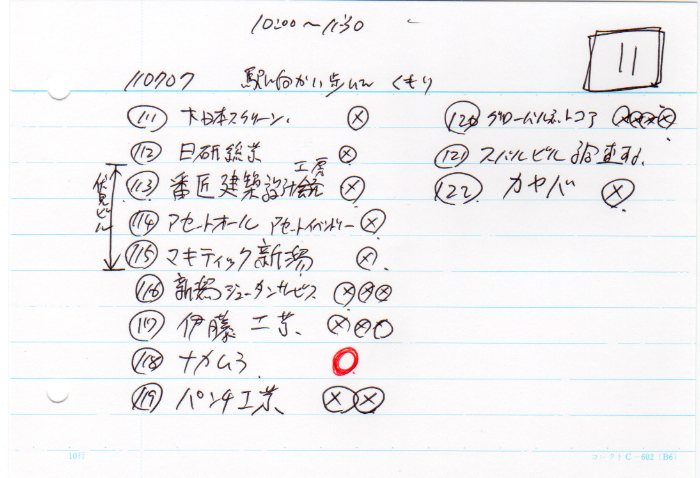 10:00〜11:30
11
110707 駅へ向かい歩いて くもり
111 大日本スクリーン. ⊗
112 日研総業 ⊗
伏見ビル
113 番匠建築設計 工房 ⊗
114 アセットオール アセットインベントリー ⊗
115 マキティック新潟 ⊗
116 新潟ジュータンサービス ⊗⊗⊗
117 伊藤工業 ⊗⊗○
118 ナカムラ ○
119 パンチ工業 ⊗⊗
120 グローバルネットコア ⊗⊗⊗⊗
121 スバルビル
122 カヤバ ⊗
10行
コレクト C-602 (B6)